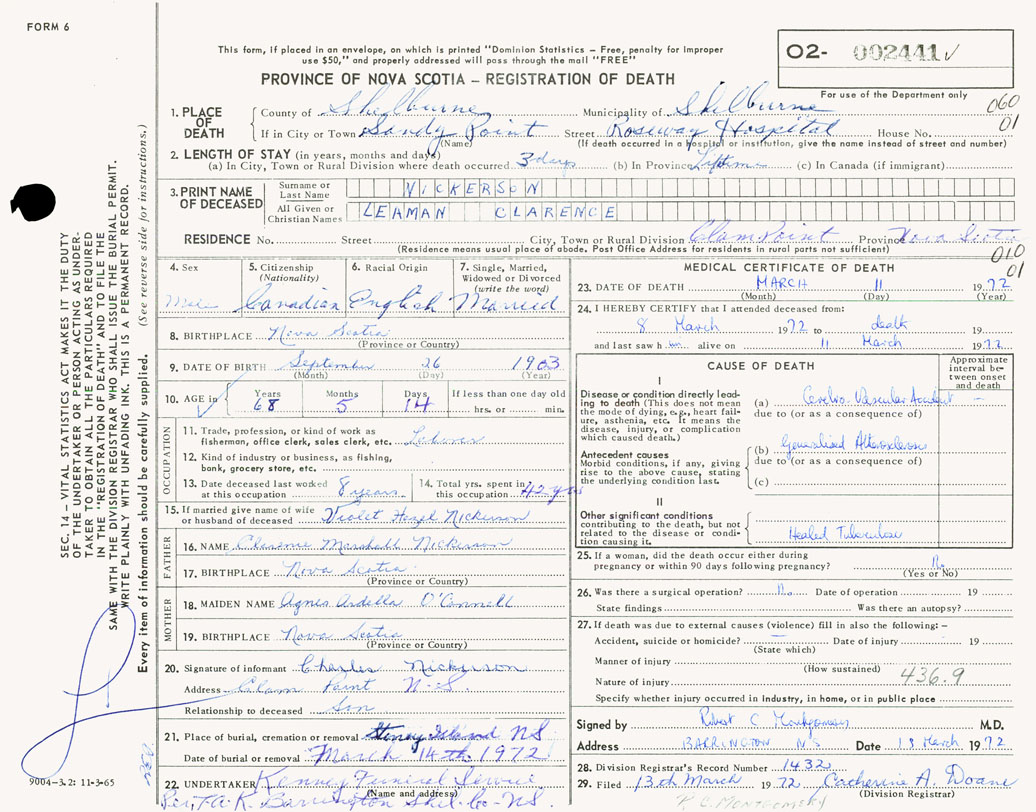 FORM 6
This form, if placed in an envelope, on which is printed "Dominion Statistics – Free, penalty for improper
use $50," and properly addressed will pass through the mail "FREE"
PROVINCE OF NOVA SCOTIA – REGISTRATION OF DEATH
O2- 002441 ✓
For use of the Department only
060
01
1. PLACE OF DEATH
County of Shelburne Municipality of Shelburne
If in City or Town Sandy Point Street Roseway Hospital House No.
(Name) (If death occurred in a hospital or institution, give the name instead of street and number)
2. LENGTH OF STAY (in years, months and days)
(a) In City, Town or Rural Division where death occurred 3 days (b) In Province Lifetime (c) In Canada (if immigrant)
3. PRINT NAME OF DECEASED
Surname or Last Name NICKERSON
All Given or Christian Names LEAMAN CLARENCE
RESIDENCE No. Street City, Town or Rural Division Clam Point Province Nova Scotia
(Residence means usual place of abode. Post Office Address for residents in rural parts not sufficient)
010
01
4. Sex Male
5. Citizenship (Nationality) Canadian
6. Racial Origin English
7. Single, Married, Widowed or Divorced (write the word) Married
8. BIRTHPLACE Nova Scotia
(Province or Country)
9. DATE OF BIRTH September 26 1903
(Month) (Day) (Year)
10. AGE in Years 68 Months 5 Days 14 If less than one day old hrs. or min.
OCCUPATION
11. Trade, profession, or kind of work as
fisherman, office clerk, sales clerk, etc. Laborer
12. Kind of industry or business, as fishing,
bank, grocery store, etc.
13. Date deceased last worked
at this occupation 8 years
14. Total yrs. spent in
this occupation 42 yrs
15. If married give name of wife
or husband of deceased Violet Hazel Nickerson
FATHER
16. NAME Clarence Marshall Nickerson
17. BIRTHPLACE Nova Scotia
(Province or Country)
MOTHER
18. MAIDEN NAME Agnes Ardella O'Connell
19. BIRTHPLACE Nova Scotia
(Province or Country)
20. Signature of informant Charles Nickerson
Address Clam Point N.S.
Relationship to deceased Son
21. Place of burial, cremation or removal Stoney Island NS
Date of burial or removal March 14th 1972
22. UNDERTAKER Kenney Funeral Service
(Name and address)
Barrington Shel. Co. NS.
MEDICAL CERTIFICATE OF DEATH
23. DATE OF DEATH MARCH 11 1972
(Month) (Day) (Year)
24. I HEREBY CERTIFY that I attended deceased from:
8 March 1972 to death 19
and last saw him alive on 11 March 1972
CAUSE OF DEATH
Approximate interval between onset and death
I
Disease or condition directly leading to death (This does not mean the mode of dying, e.g., heart failure, asthenia, etc. It means the disease, injury, or complication which caused death.)
(a) Cerebro-Vascular Accident –
due to (or as a consequence of)
Antecedent causes
Morbid conditions, if any, giving rise to the above cause, stating the underlying condition last.
(b) Generalized
due to (or as a consequence of)
(c)
II
Other significant conditions
contributing to the death, but not related to the disease or condition causing it.
Healed Tuberculosis
25. If a woman, did the death occur either during
pregnancy or within 90 days following pregnancy? No
(Yes or No)
26. Was there a surgical operation? No Date of operation 19
State findings Was there an autopsy?
27. If death was due to external causes (violence) fill in also the following: –
Accident, suicide or homicide? Date of injury 19
(State which)
Manner of injury
(How sustained)
Nature of injury 436.9
Specify whether injury occurred in industry, in home, or in public place
Signed by Robert C Montgomery M.D.
Address BARRINGTON NS Date 13 March 1972
28. Division Registrar's Record Number 1432
29. Filed 13th March 1972 Catherine A. Doane
(Division Registrar)
R C MONTGOMERY
SEC. 14 – VITAL STATISTICS ACT MAKES IT THE DUTY
OF THE UNDERTAKER OR PERSON ACTING AS UNDER-
TAKER TO OBTAIN ALL THE PARTICULARS REQUIRED
IN THE "REGISTRATION OF DEATH" AND TO FILE THE
SAME WITH THE DIVISION REGISTRAR WHO SHALL ISSUE THE BURIAL PERMIT.
WRITE PLAINLY WITH UNFADING INK. THIS IS A PERMANENT RECORD.
Every item of information should be carefully supplied. (See reverse side for instructions.)
9004-3.2: 11-3-65